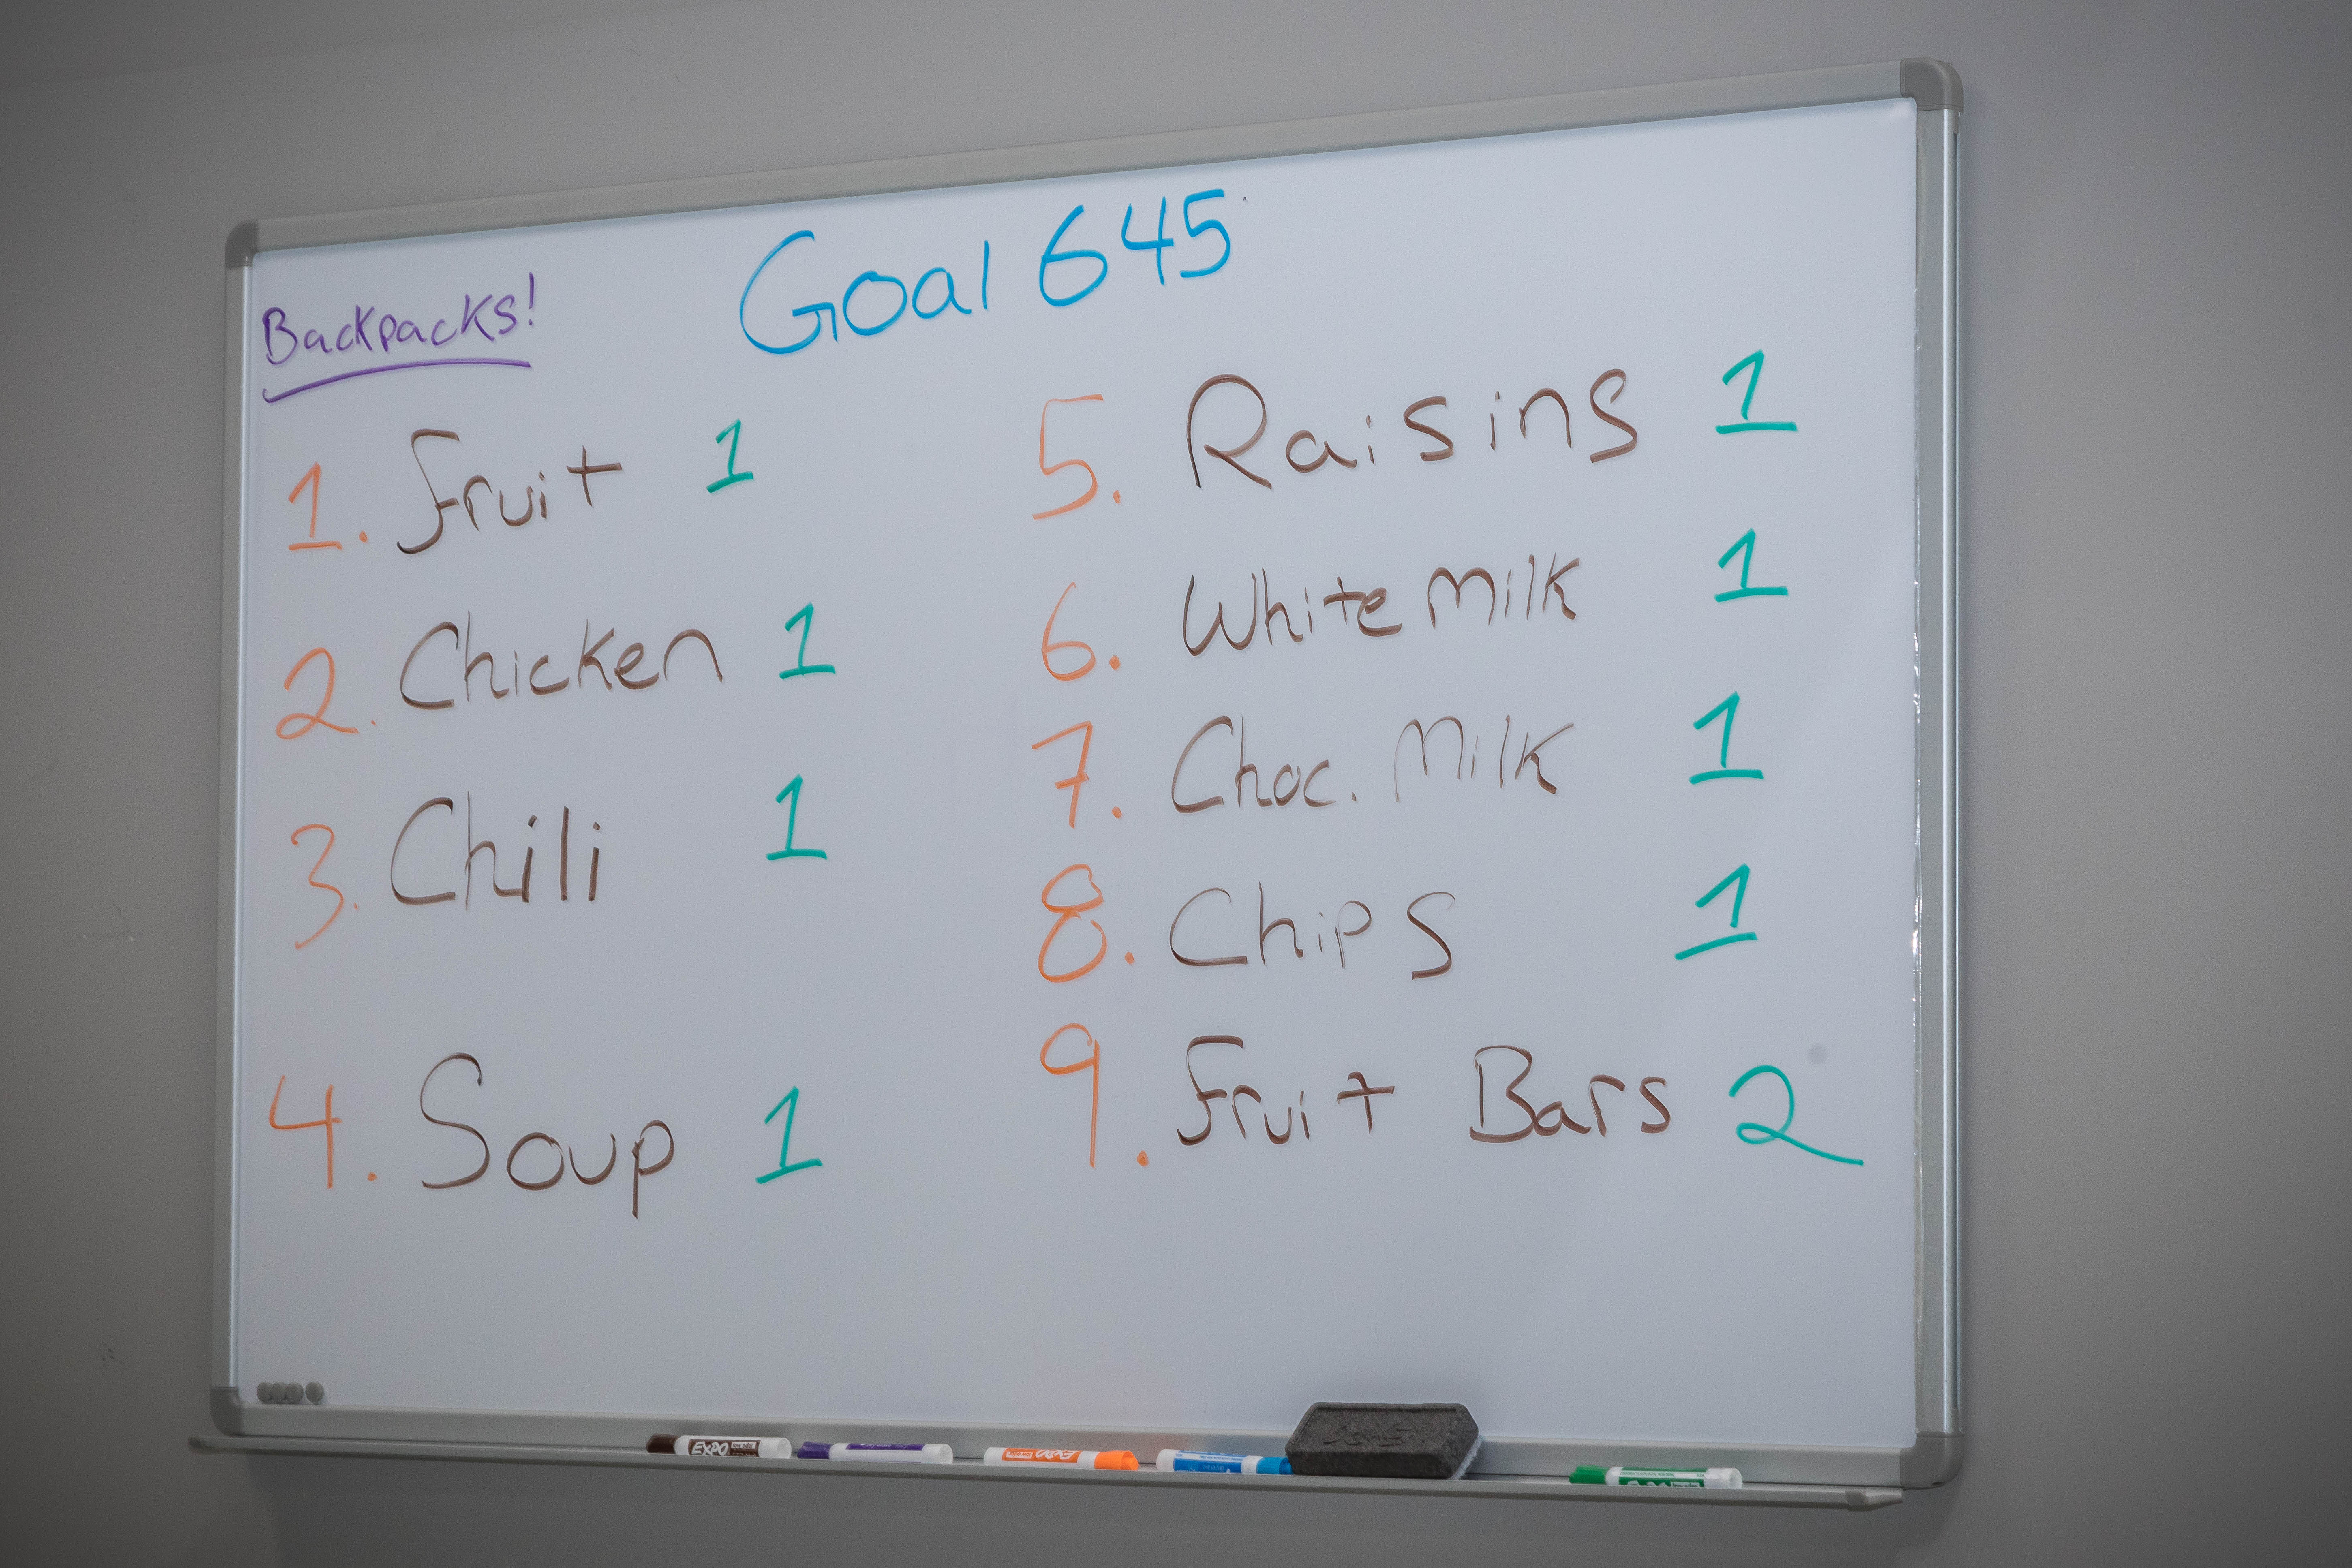 Goal 645
Backpacks!
1. Fruit 1
2. Chicken 1
3. Chili 1
4. Soup 1
5. Raisins 1
6. White Milk 1
7. Choc. Milk 1
8. Chips 1
9. Fruit Bars 2
EXPO
EXPO